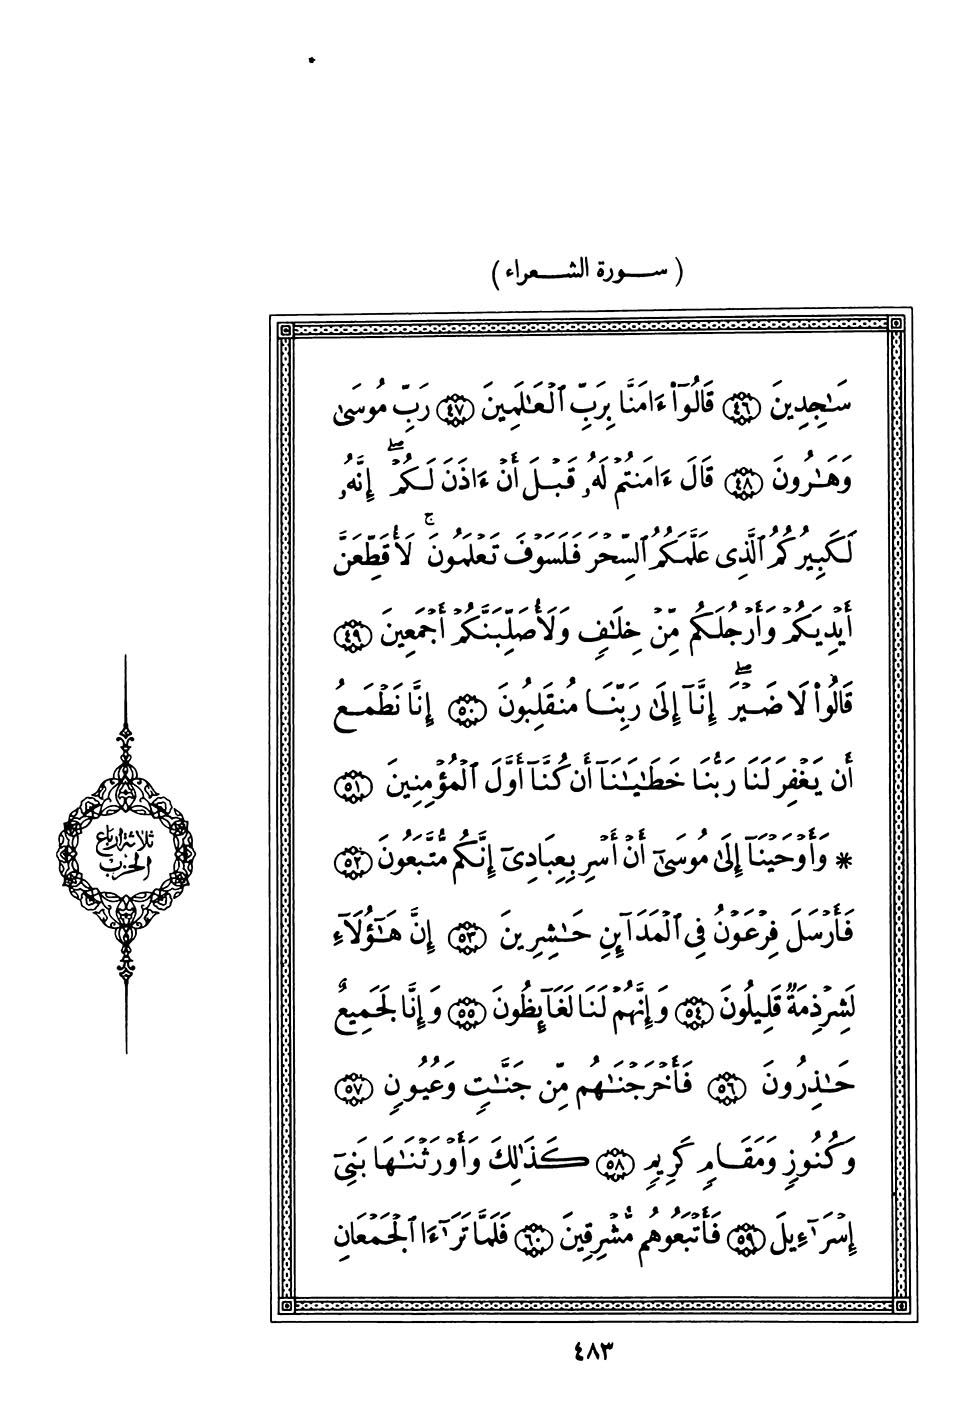 ( ســورة الشــعراء )
سَـٰجِدِينَ ٤٦ قَالُوٓا۟ ءَامَنَّا بِرَبِّ ٱلْعَـٰلَمِينَ ٤٧ رَبِّ مُوسَىٰ
وَهَـٰرُونَ ٤٨ قَالَ ءَامَنتُمْ لَهُۥ قَبْلَ أَنْ ءَاذَنَ لَكُمْ ۖ إِنَّهُۥ
لَكَبِيرُكُمُ ٱلَّذِى عَلَّمَكُمُ ٱلسِّحْرَ فَلَسَوْفَ تَعْلَمُونَ ۚ لَأُقَطِّعَنَّ
أَيْدِيَكُمْ وَأَرْجُلَكُم مِّنْ خِلَـٰفٍ وَلَأُصَلِّبَنَّكُمْ أَجْمَعِينَ ٤٩
قَالُوا۟ لَا ضَيْرَ ۖ إِنَّآ إِلَىٰ رَبِّنَا مُنقَلِبُونَ ٥٠ إِنَّا نَطْمَعُ
أَن يَغْفِرَ لَنَا رَبُّنَا خَطَـٰيَـٰنَآ أَن كُنَّآ أَوَّلَ ٱلْمُؤْمِنِينَ ٥١
* وَأَوْحَيْنَآ إِلَىٰ مُوسَىٰٓ أَنْ أَسْرِ بِعِبَادِىٓ إِنَّكُم مُّتَّبَعُونَ ٥٢
فَأَرْسَلَ فِرْعَوْنُ فِى ٱلْمَدَآئِنِ حَـٰشِرِينَ ٥٣ إِنَّ هَـٰٓؤُلَآءِ
لَشِرْذِمَةٌ قَلِيلُونَ ٥٤ وَإِنَّهُمْ لَنَا لَغَآئِظُونَ ٥٥ وَإِنَّا لَجَمِيعٌ
حَـٰذِرُونَ ٥٦ فَأَخْرَجْنَـٰهُم مِّن جَنَّـٰتٍ وَعُيُونٍ ٥٧
وَكُنُوزٍ وَمَقَامٍ كَرِيمٍ ٥٨ كَذَٰلِكَ وَأَوْرَثْنَـٰهَا بَنِىٓ
إِسْرَٰٓءِيلَ ٥٩ فَأَتْبَعُوهُم مُّشْرِقِينَ ٦٠ فَلَمَّا تَرَٰٓءَا ٱلْجَمْعَانِ
ثلاثة أرباع
الحزب
٤٨٣